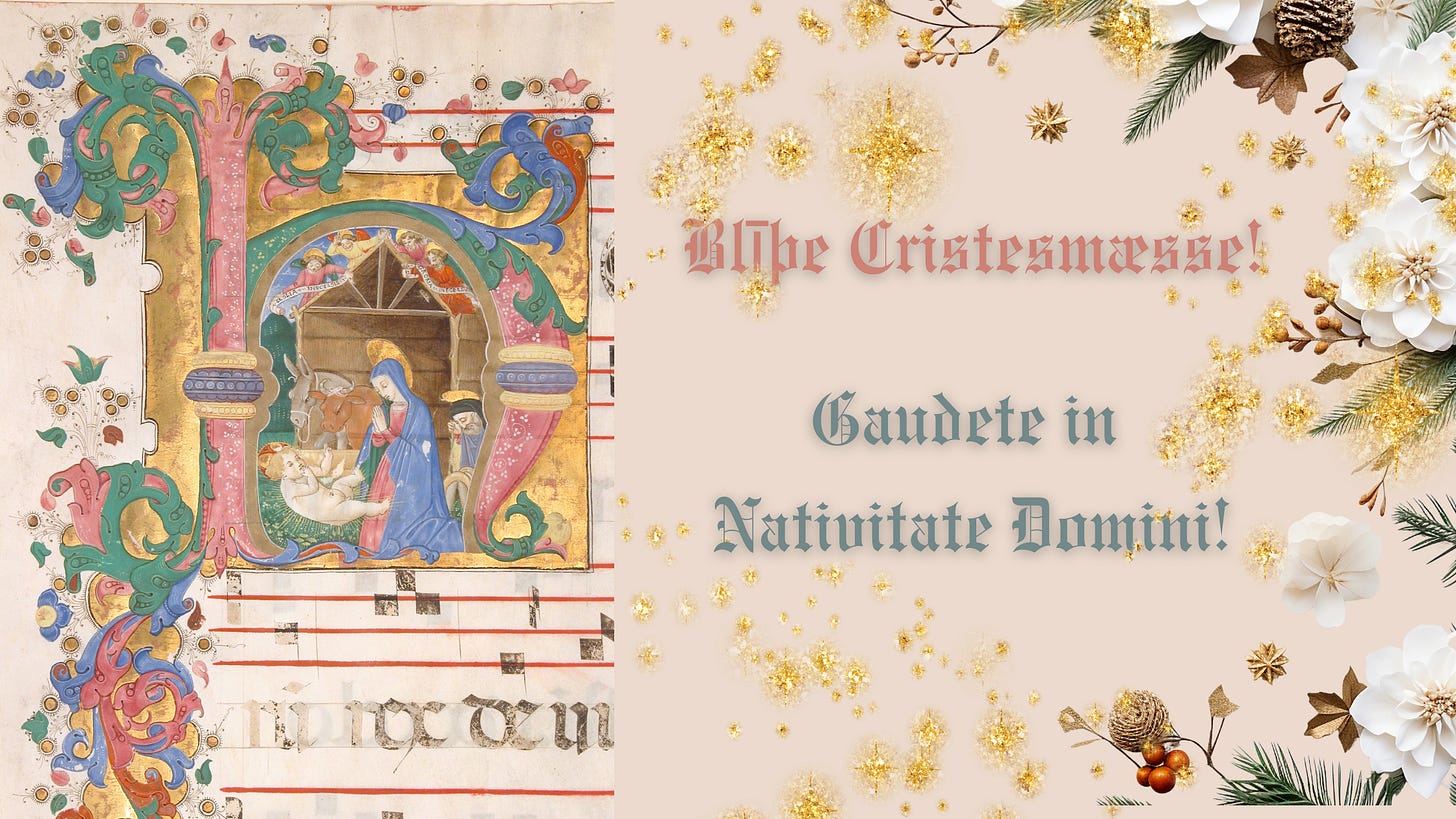 Blīþe Cristesmæsse!
Gaudete in
Nativitate Domini!